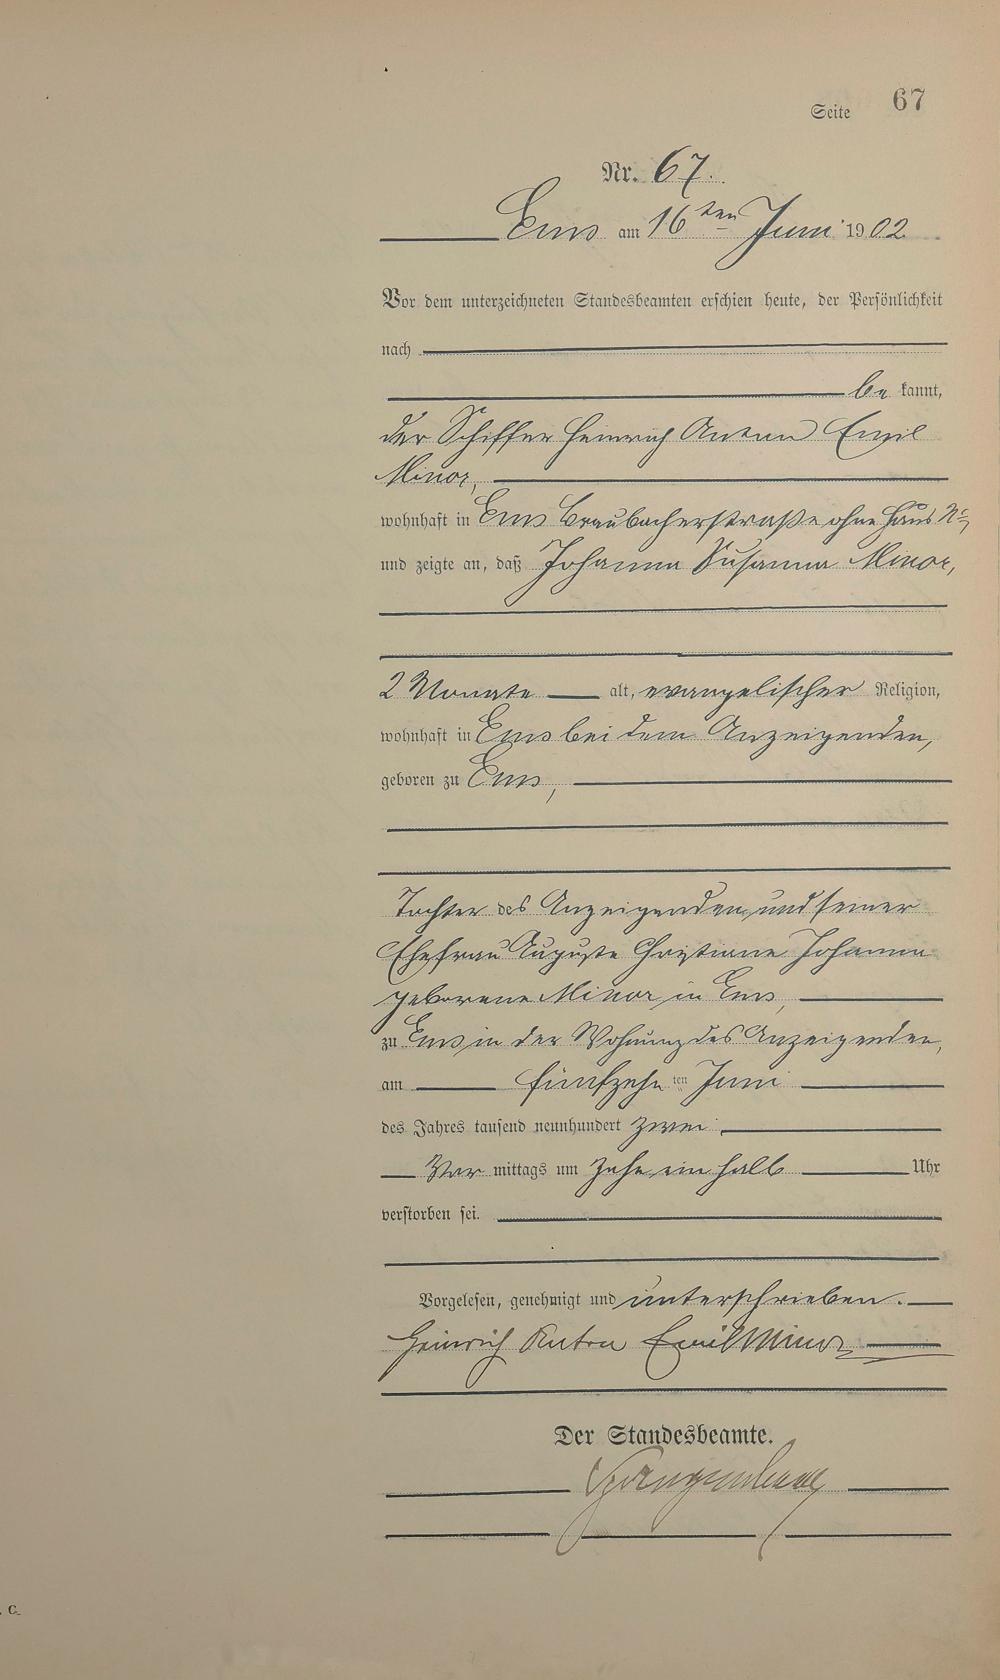 Seite 67
Nr. 67.
Ems am 16ten Juni 1902
Vor dem unterzeichneten Standesbeamten erschien heute, der Persönlichkeit
nach
be kannt,
der Schiffer Heinrich Anton Emil
Minor,
wohnhaft in Ems Braubacherstraße ohne Haus No,
und zeigte an, daß Johanna Susanna Minor,
2 Monate alt, evangelischer Religion,
wohnhaft in Ems bei dem Anzeigenden,
geboren zu Ems,
Tochter des Anzeigenden und seiner
Ehefrau Auguste Christiane Johanna
geborene Minor in Ems,
zu Ems in der Wohnung des Anzeigenden,
am fünfzehn ten Juni
des Jahres tausend neunhundert zwei
Vor mittags um zehn ein halb Uhr
verstorben sei.
Vorgelesen, genehmigt und unterschrieben.
Heinrich Anton Emil Minor
Der Standesbeamte.
C.